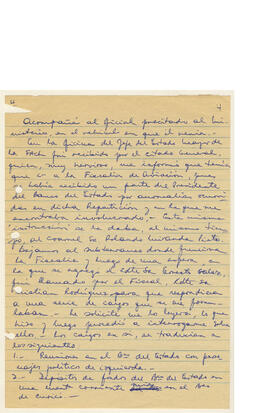 4 4
Acompañé al oficial precitado al Mi-
nisterio, en el vehículo en que él venía.-
En la Oficina del Jefe del Estado Mayor de
la FACh fui recibido por el citado General,
quien, muy nervioso, me informó que tenía
que ir a la Fiscalía de Aviación, pues
se había recibido un parte del Presidente
del Banco del Estado por anomalías
en dicha Repartición y en la que me
encontraba involucrado.- Esta misma
instrucción se la daba, al mismo tiem-
po, al Coronel Sr. Rolando Miranda
Bajamos al Subterráneo donde funciona
la Fiscalía y luego de una espera en
la que se agregó el Cdte. Sr. Ernesto Galaz,
fui llamado por el Fiscal, Cdte. Sr.
Rodríguez para que respondiera
a una serie de cargos que se me formu-
laban.- Le solicité me lo leyera, lo que
hizo y luego procedió a interrogarme sobre
ellos.- Los cargos en sí, se traducían a
los siguientes
1.- Reuniones en el Bco. del Estado con perso-
najes políticos de izquierda.-
2.- Depósitos de fondos del Bco. del Estado en
una cuenta corriente en el Bco.
de Curicó.-